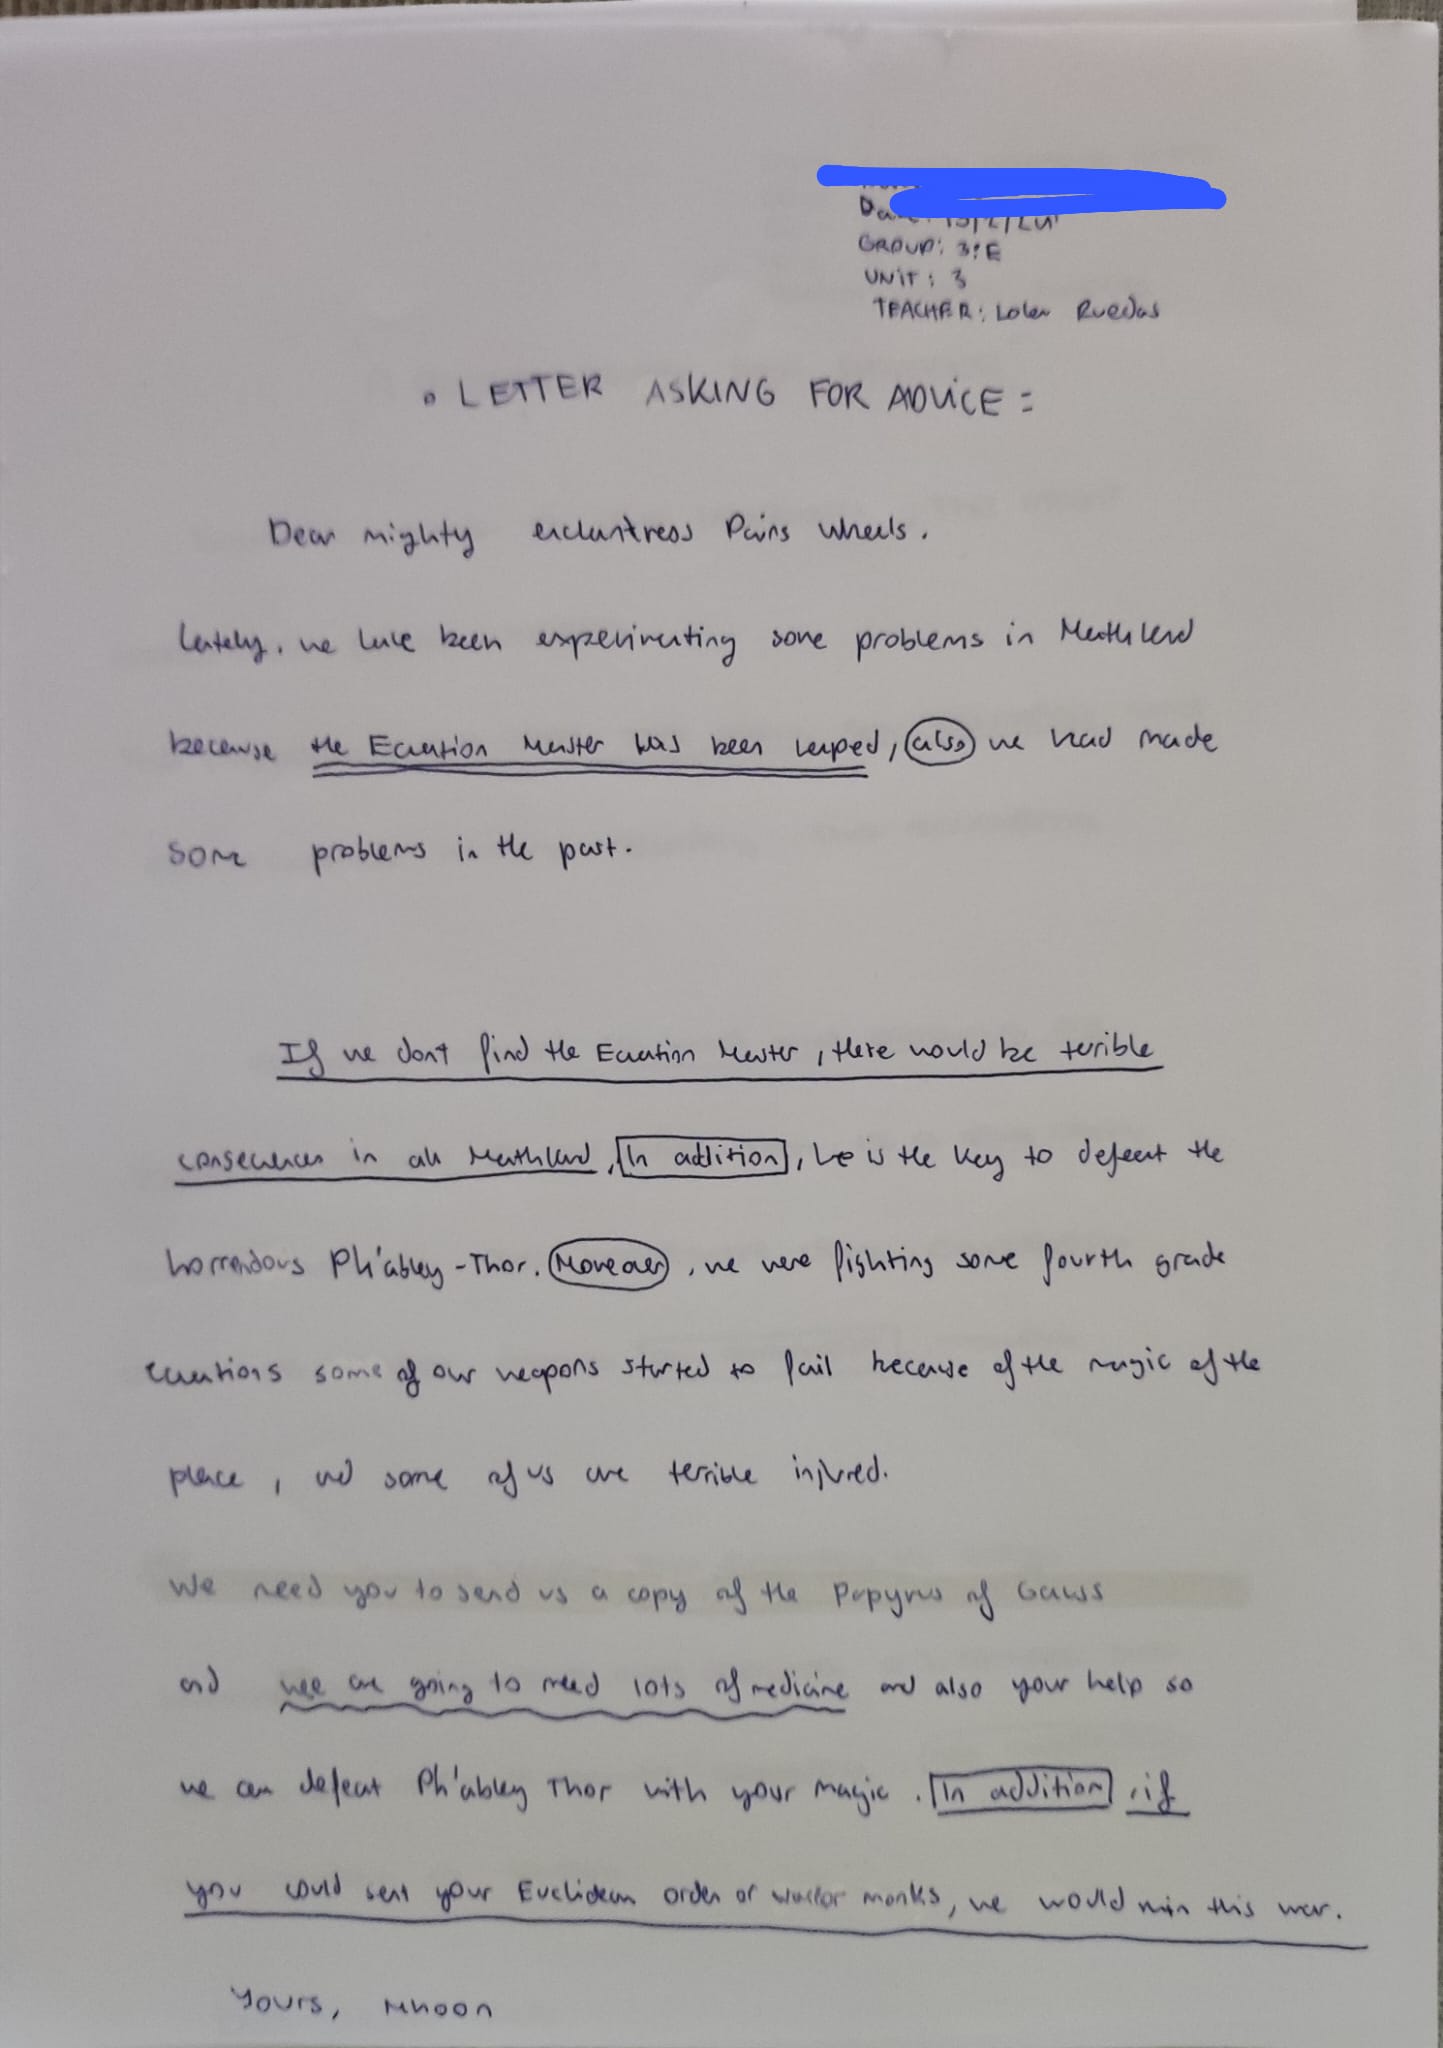 GROUP: 3ºE
UNIT: 3
TEACHER: Ruedas
• LETTER ASKING FOR ADVICE:
Dear mighty enchantress Paris Wheels.
Lately, we have been experimenting some problems in Mathland
because the Ecuation Master has been kaped, also we had made
some problems in the past.
If we dont find the Ecuation Master, there would be terrible
consecuences in all Mathland, In addition, he is the key to defeat the
horrendous Ph'abley-Thor. Moreover, we were fighting some fourth grade
ecuations some of our weapons started to fail because of the magic of the
place, and some of us are terrible injured.
We need you to send us a copy of the Papyrus of Gauss
and we are going to need lots of medicine and also your help so
we can defeat Ph'abley Thor with your magic. In addition, if
you could sent your Euclidean order of warrior monks, we would win this war.
Yours, Nhoon